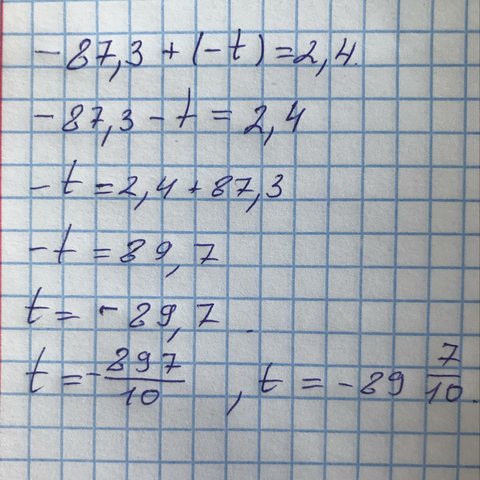 -87,3 + (-t) = 2,4.
-87,3 - t = 2,4
-t = 2,4 + 87,3
-t = 89,7
t = -89,7.
t = -897/10 , t = -89 7/10.